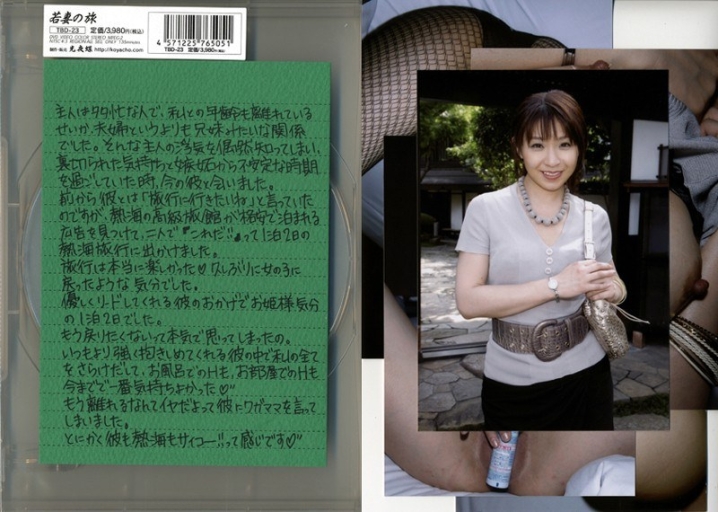 若妻の旅
TBD-23 定価/3,980円(税込)
発売・販売元 光夜蝶 http://koyacho.com
4 571225 765051
TBD-23 定価/3,980円(税込)
主人は多忙な人で、私との年齢も離れている
せいか、夫婦というよりも兄妹みたいな関係
でした。そんな主人の浮気を偶然知ってしまい、
裏切られた気持ちと嫉妬から不安定な時期
を過ごしていた時、今の彼と会いました。
前から彼とは「旅行に行きたいね」と言っていた
のですが、熱海の高級旅館が格安で泊まれる
広告を見つけて、二人で『これだ!!』って1泊2日の
熱海旅行に出かけました。
旅行は本当に楽しかった♡久しぶりに女の子に
戻ったような気分でした。
優しくリードしてくれる彼のおかげでお姫様気分
の1泊2日でした。
もう戻りたくないって本気で思ってしまったの。
いつもより強く抱きしめてくれる彼の中で私の全て
をさらけだして、お風呂でのHも、お部屋でのHも
今までで一番気持ちよかった♡
もう離れるなんてイヤだよって彼にワガママを言って
しまいました。
とにかく彼も熱海もサイコー!!って感じです♡